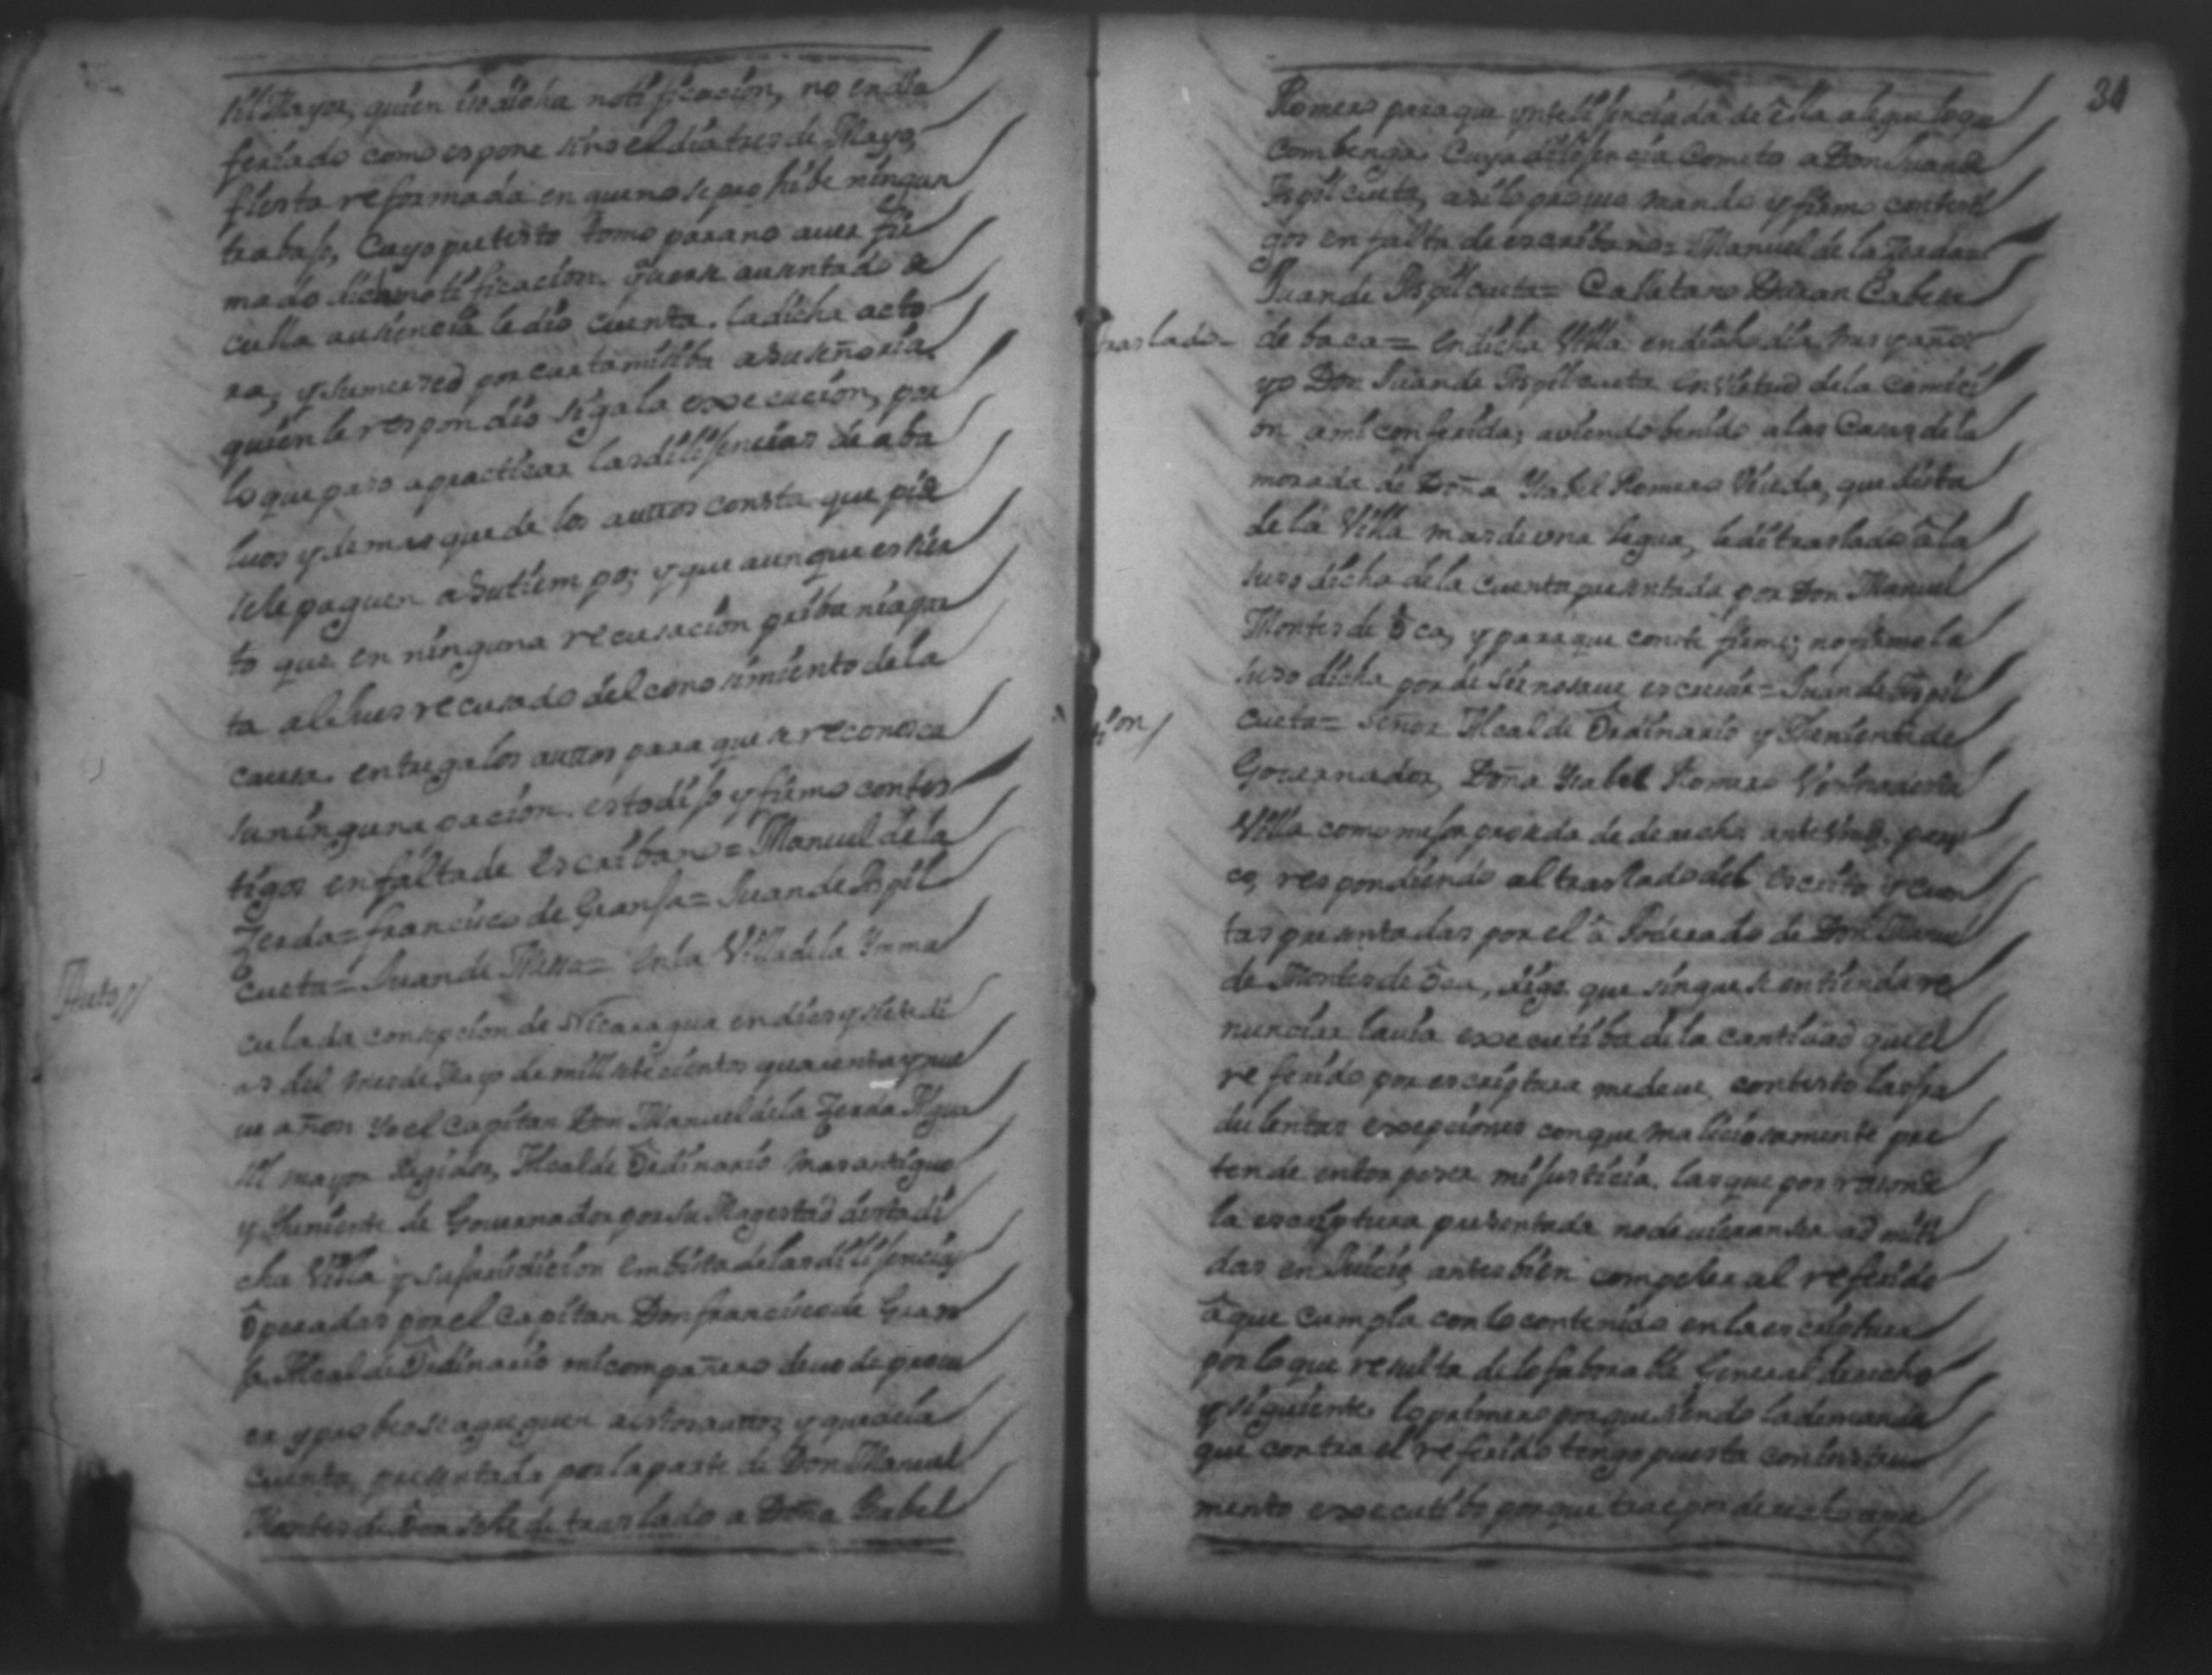 sil Mayor, quien iso dicha notificacion, no en dia
feriado como espone sino el dia tres de Mayo,
fiesta reformada en que no se prohibe ningun
trabajo, Cuyo pretexto tomo para no auer fir
mado dicha notificacion. y auerse ausentado de
cuIIa ausencia le dio cuenta. la dicha acto
ra, y su merced por carta misiba a su señoria,
quien le respondio siga la execucion, por
lo que paso a practicar las dilijencias de aba
luos y demas que de los auttos consta que pide
se le paguen a su tiempo; y que aunque es sier
to que en ninguna recusacion priba ni apar
ta al Jues recusado del conosimiento de la
causa. entrega los auttos para que se reconosca
su ninguna pacion. esto dijo y firmo con tes
tigos en falta de Escribano = Manuel de la
Zerda = francisco de Granja = Juan de Aspil
cueta = Juan de Mesa = En la Villa de la Ynma
Auto//
culada consepcion de Nicaragua en dies y siete di
as del mes de Mayo de mill setecientos quarenta y nue
ue años Yo el Capitan Don Manuel de la Zerda Agua
sil mayor Regidor, Alcalde Ordinario mas antiguo
y Theniente de Gouernador por su Magestad desta di
cha Villa y su jurisdicion En bista de las dilijencias
operadas por el Capitan Don francisco de Gran
ja Alcalde Ordinario mi compañero deuo de proue
er y probeo se agreguen a estos auttos y que de la
cuenta, presentada por la parte de Don Manuel
Montes de Oca se le de traslado a Doña Ysabel
31
Romero para que ynteligenciada de ella alegue lo que
combenga Cuya dilijencia Cometo a Don Juan de
Aspilcueta, asi lo probeo mando y firmo con testi
gos en falta de escribano = Manuel de la Zerda =
Juan de Aspilcueta = Calletano Duran Cabesa
traslado de baca = En dicha Villa en dicho dia mes y año
yo Don Juan de Aspilcueta En virtud de la comici
on a mi conferida; auiendo benido a las Casas de la
morada de Doña Ysabel Romero Viuda, que dista
de la Villa mas de una legua, le di traslado â la
suso dicha de la cuenta presentada por Don Manuel
Montes de Oca, y para que conste firme; no firmo la
suso dicha por desir no saue escreuir = Juan de Aspil
cueta = Señor Alcalde Ordinario y Theniente de
Gouernador, Doña Ysabel Romero Vesina de esta
Villa como mejor proseda de derecho ante Vmd. pares
co, respondiendo al traslado del Escrito y cuen
tas presentadas por el aPoderado de Don Manuel
de Montes de Oca, digo que sin que se entienda re
nunciar la via executiba de la cantidad que el
referido por escriptura me deue, contesto las fra
dulentas exsepciones con que maliciosamente pre
tende entorpeser mi justicia. las que por rason de
la escriptura presentada no deuieran ser admiti
das en Juicio antes bien compeler al referido
â que cumpla con lo contenido en la escriptura
por lo que resulta de lo faborable General derecho
y siguiente. lo primero porque siendo la demanda
que contra el referido tengo puesta con instru
mento executibo porque trae por derecho apa